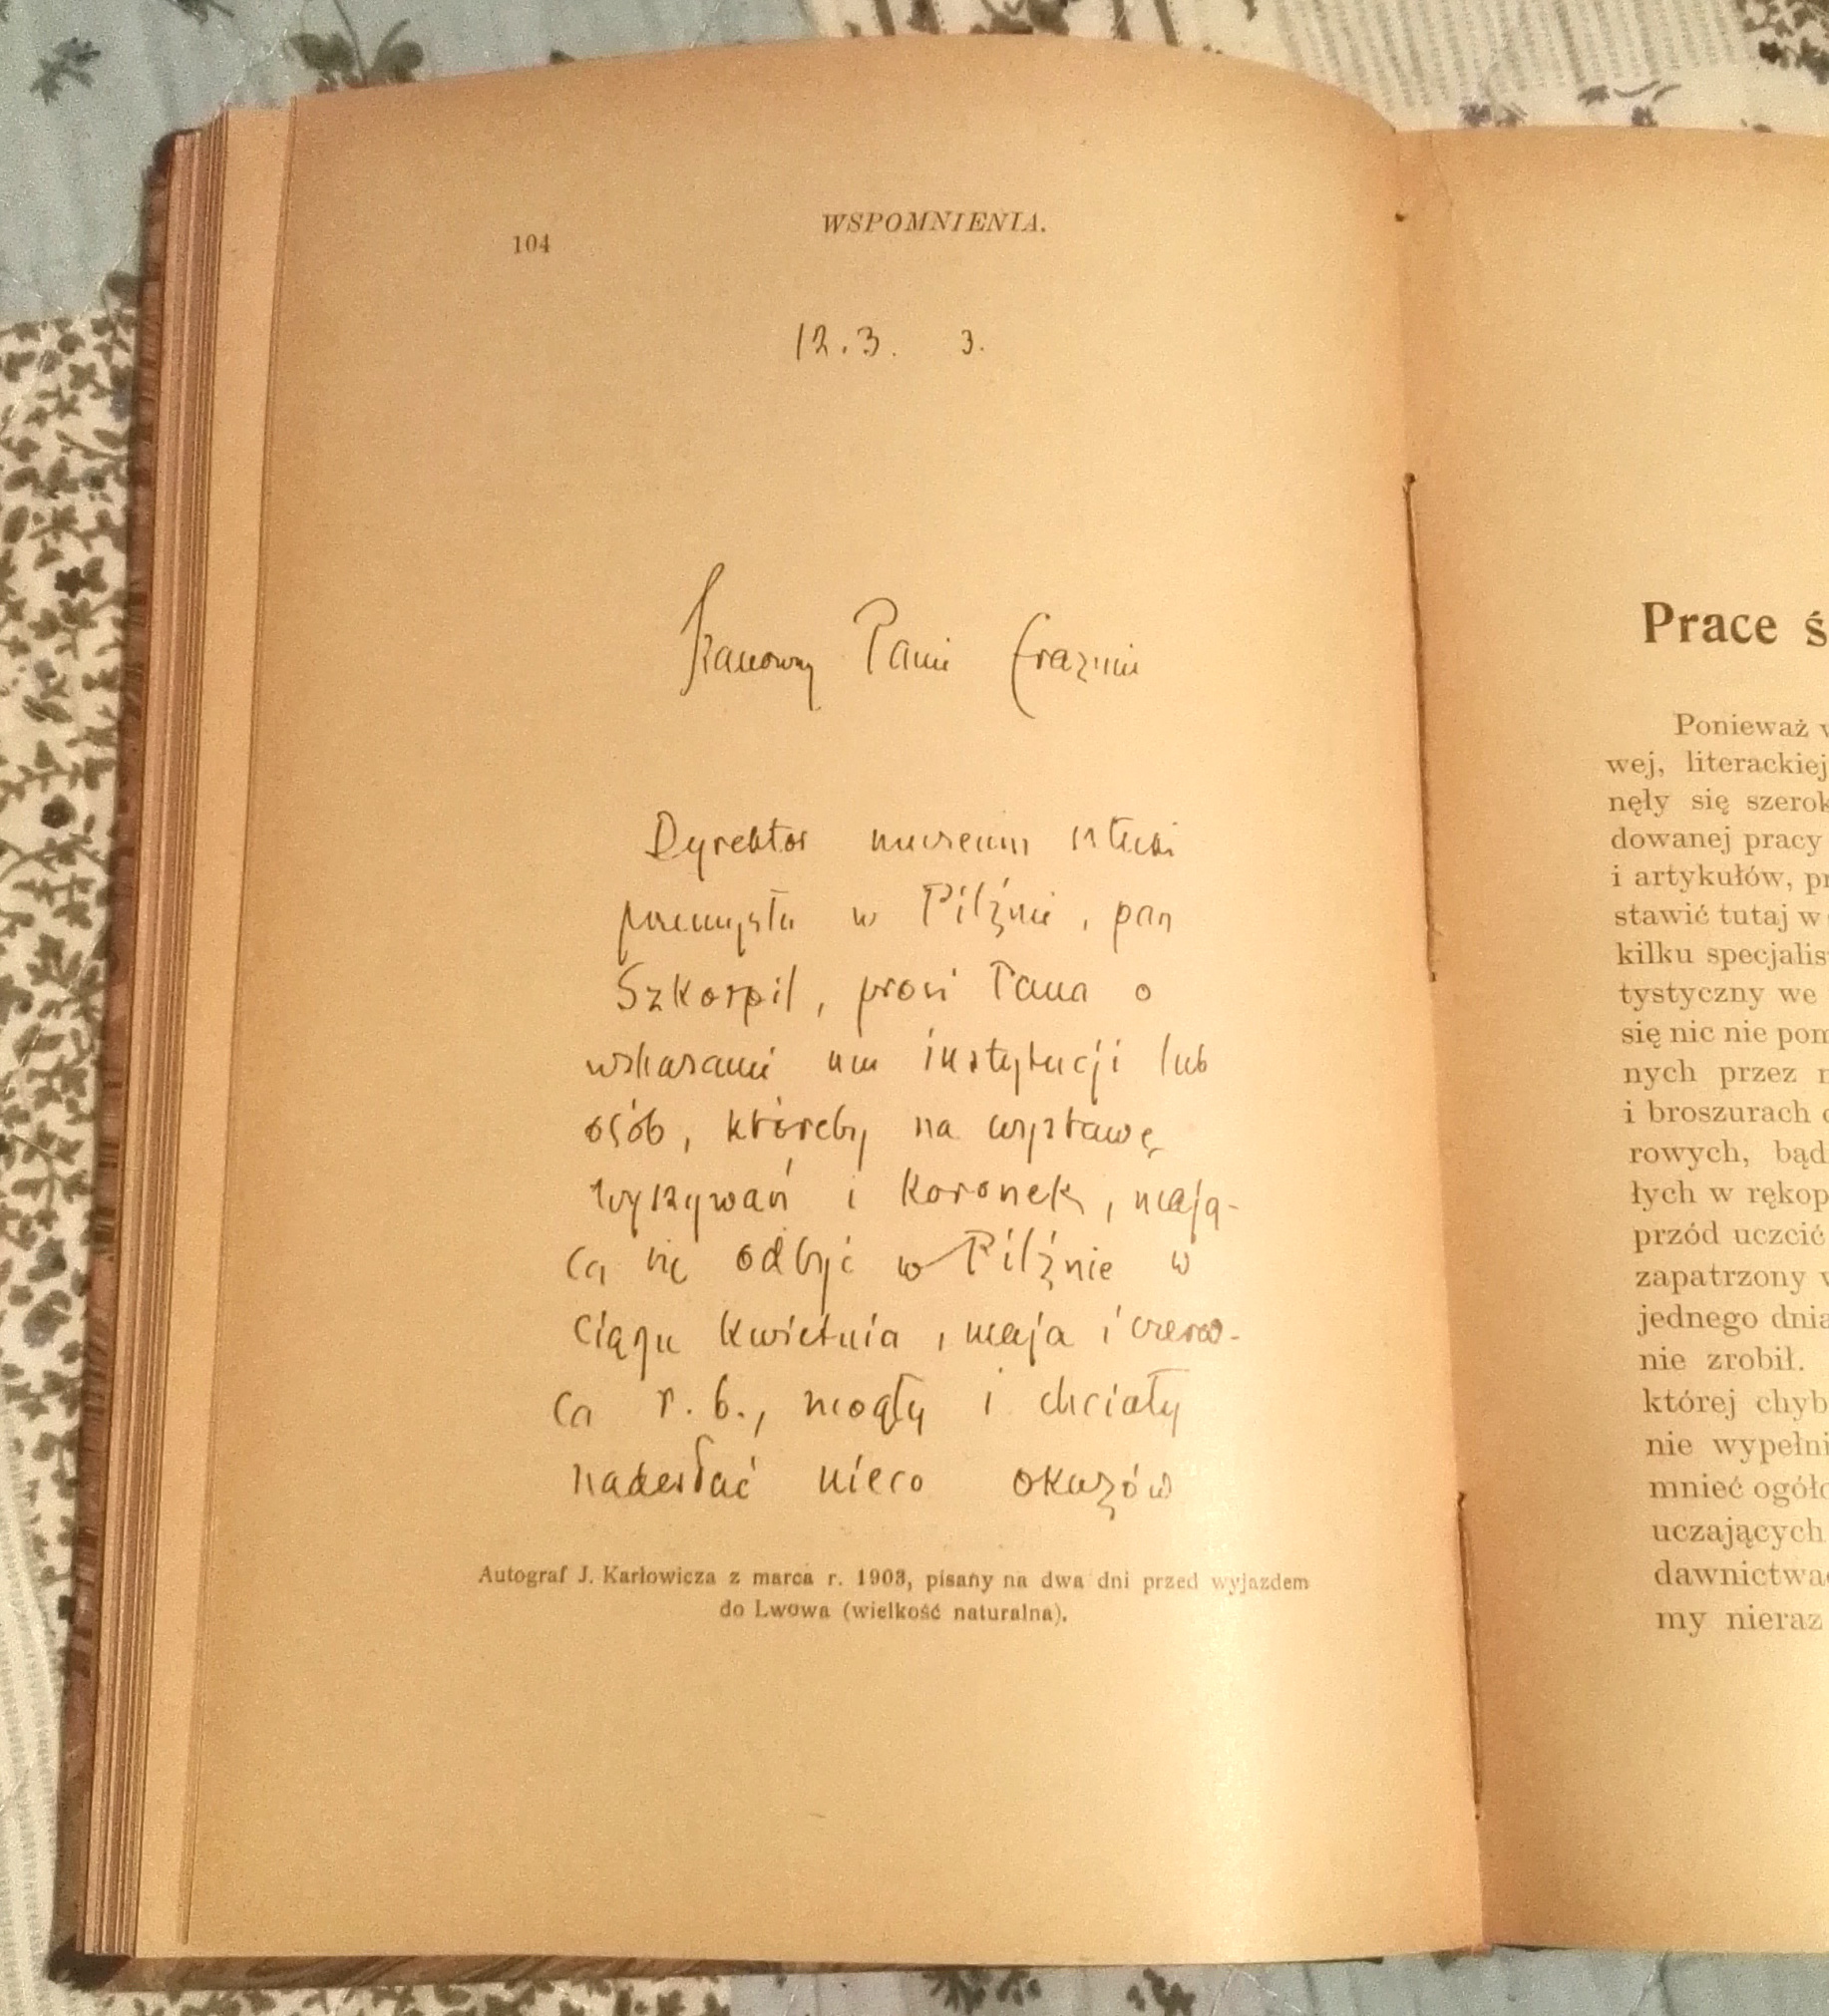 104
WSPOMNIENIA.
12.3. 3.
Szanowny Panie Erazmie
Dyrektor muzeum sztuki
przemysłu w Pilźnie, pan
Szkorpil, prosi Pana o
wskazanie mu instytucji lub
osób, któreby na wystawę
wyszywań i koronek, mają-
cą się odbyć w Pilźnie w
ciągu kwietnia, maja i czerw-
ca r. b., mogły i chciały
nadesłać nieco okazów
Autograf J. Karłowicza z marca r. 1903, pisany na dwa dni przed wyjazdem
do Lwowa (wielkość naturalna).
Prace ś
Ponieważ w
wej, literackiej
nęły się szerok
dowanej pracy
i artykułów, pr
stawić tutaj w
kilku specjalis
tystyczny we
się nic nie pom
nych przez n
i broszurach
rowych, bąd
łych w rękop
przód uczcić
zapatrzony w
jednego dnia
nie zrobił.
której chyb
nie wypełni
mnieć ogóło
uczających
dawnictwa
my nieraz